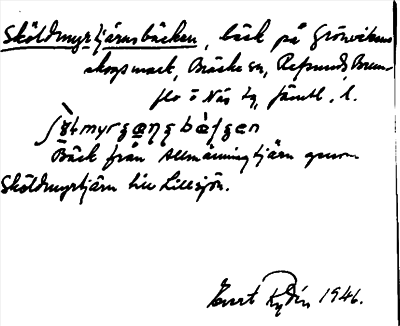 Sköldmyrtjärnsbäcken, bäck på Grönvikens
skogsmark, Bräcke sn, Refsunds Brun-
flo o Näs tg, Jämtl. l.
Bäck från Allmänningtjärn genom
Sköldmyrtjärn till Lillsjön.
Evert Rydén 1946.